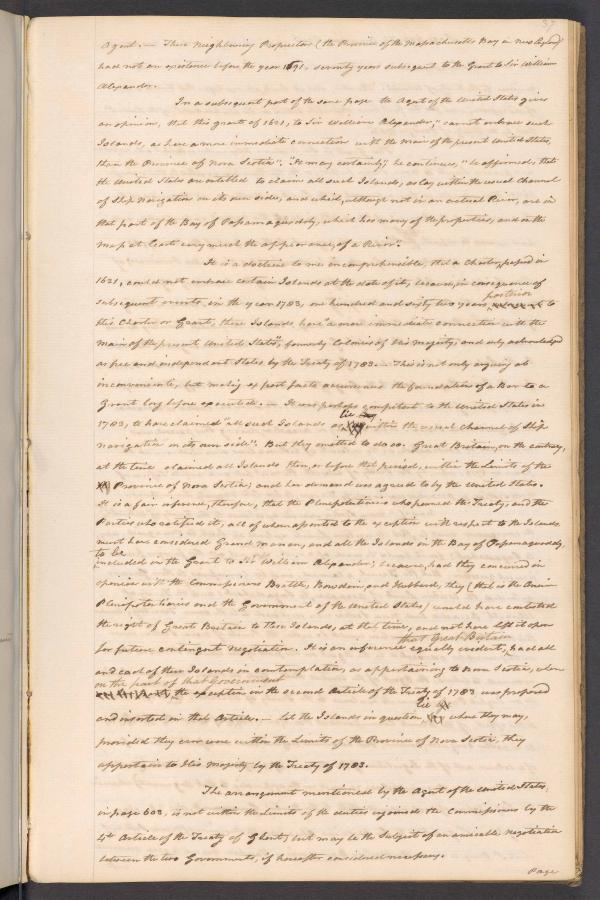 37
Agent. — These Neighbouring Proprietors (the Province of the Massachusetts Bay in New England)
had not an existence before the year 1691, seventy years subsequent to the Grant to Sir William
Alexander.
In a subsequent part of the same page the Agent of the United States gives
an opinion, that this grant of 1621, to Sir William Alexander, "cannot embrace such
Islands, as have a more immediate connection with the Main of the present United States,
than the Province of Nova Scotia". "It may certainly," he continues, "be affirmed, that
the United States are entitled to claim all such Islands, as lay within the usual channel
of Ship Navigation on its own side, and which, although not in an actual River, are in
that part of the Bay of Passamaquoddy, which has many of the properties, and on the
Map at least carry much the appearance, of a River".
It is a doctrine to me incomprehensible, that a Charter, passed in
1621, could not embrace certain Islands at the date of it, because, in consequence of
posterior
subsequent events, in the year 1783, one hundred and sixty two years, to
this Charter or Grant, these Islands have "a more immediate connection with the
Main of the present United States", formerly Colonies of His Majesty, and only acknowledged
as free and independent States by the Treaty of 1783. — This is not only arguing ab
inconvenienti, but making ex post facto occurrences the foundation of a Bar to a
Grant long before executed. — It was perhaps competent to the United States in
lie
1783, to have claimed "all such Islands as within the usual channel of Ship
navigation on its own side". But they omitted to do so. Great Britain, on the contrary,
at the time claimed all Islands then, or before that period, within the Limits of the
Province of Nova Scotia; and her demand was agreed to by the United States.
It is a fair inference, therefore, that the Plenipotentiaries who penned the Treaty, and the
Parties who ratified it, all of whom assented to the exception with respect to the Islands
must have considered Grand Manan, and all the Islands in the Bay of Passamaquoddy,
to be
included in the Grant to Sir William Alexander; because, had they concurred in
opinion with the Commissioners Brattle, Bowdoin and Hubbard, they (that is the
Plenipotentiaries and the Government of the United States) would have contested
the right of Great Britain to these Islands, at that time, and not have left it open
that Great Britain
for future contingent negotiation. It is an inference equally evident, had all
and each of these Islands in contemplation, as appertaining to Nova Scotia, when
on the part of that Government
the exception in the second Article of the Treaty of 1783 was proposed
lie
and inserted in that Article. — Let the Islands in question, where they may,
provided they ever were within the Limits of the Province of Nova Scotia, they
appertain to His Majesty by the Treaty of 1783.
The arrangement mentioned by the Agent of the United States,
in page 602, is not within the Limits of the duties enjoined the Commissioners by the
4th Article of the Treaty of Ghent; but may be the Subject of an amicable Negotiation
between the two Governments, if hereafter considered necessary.
Page